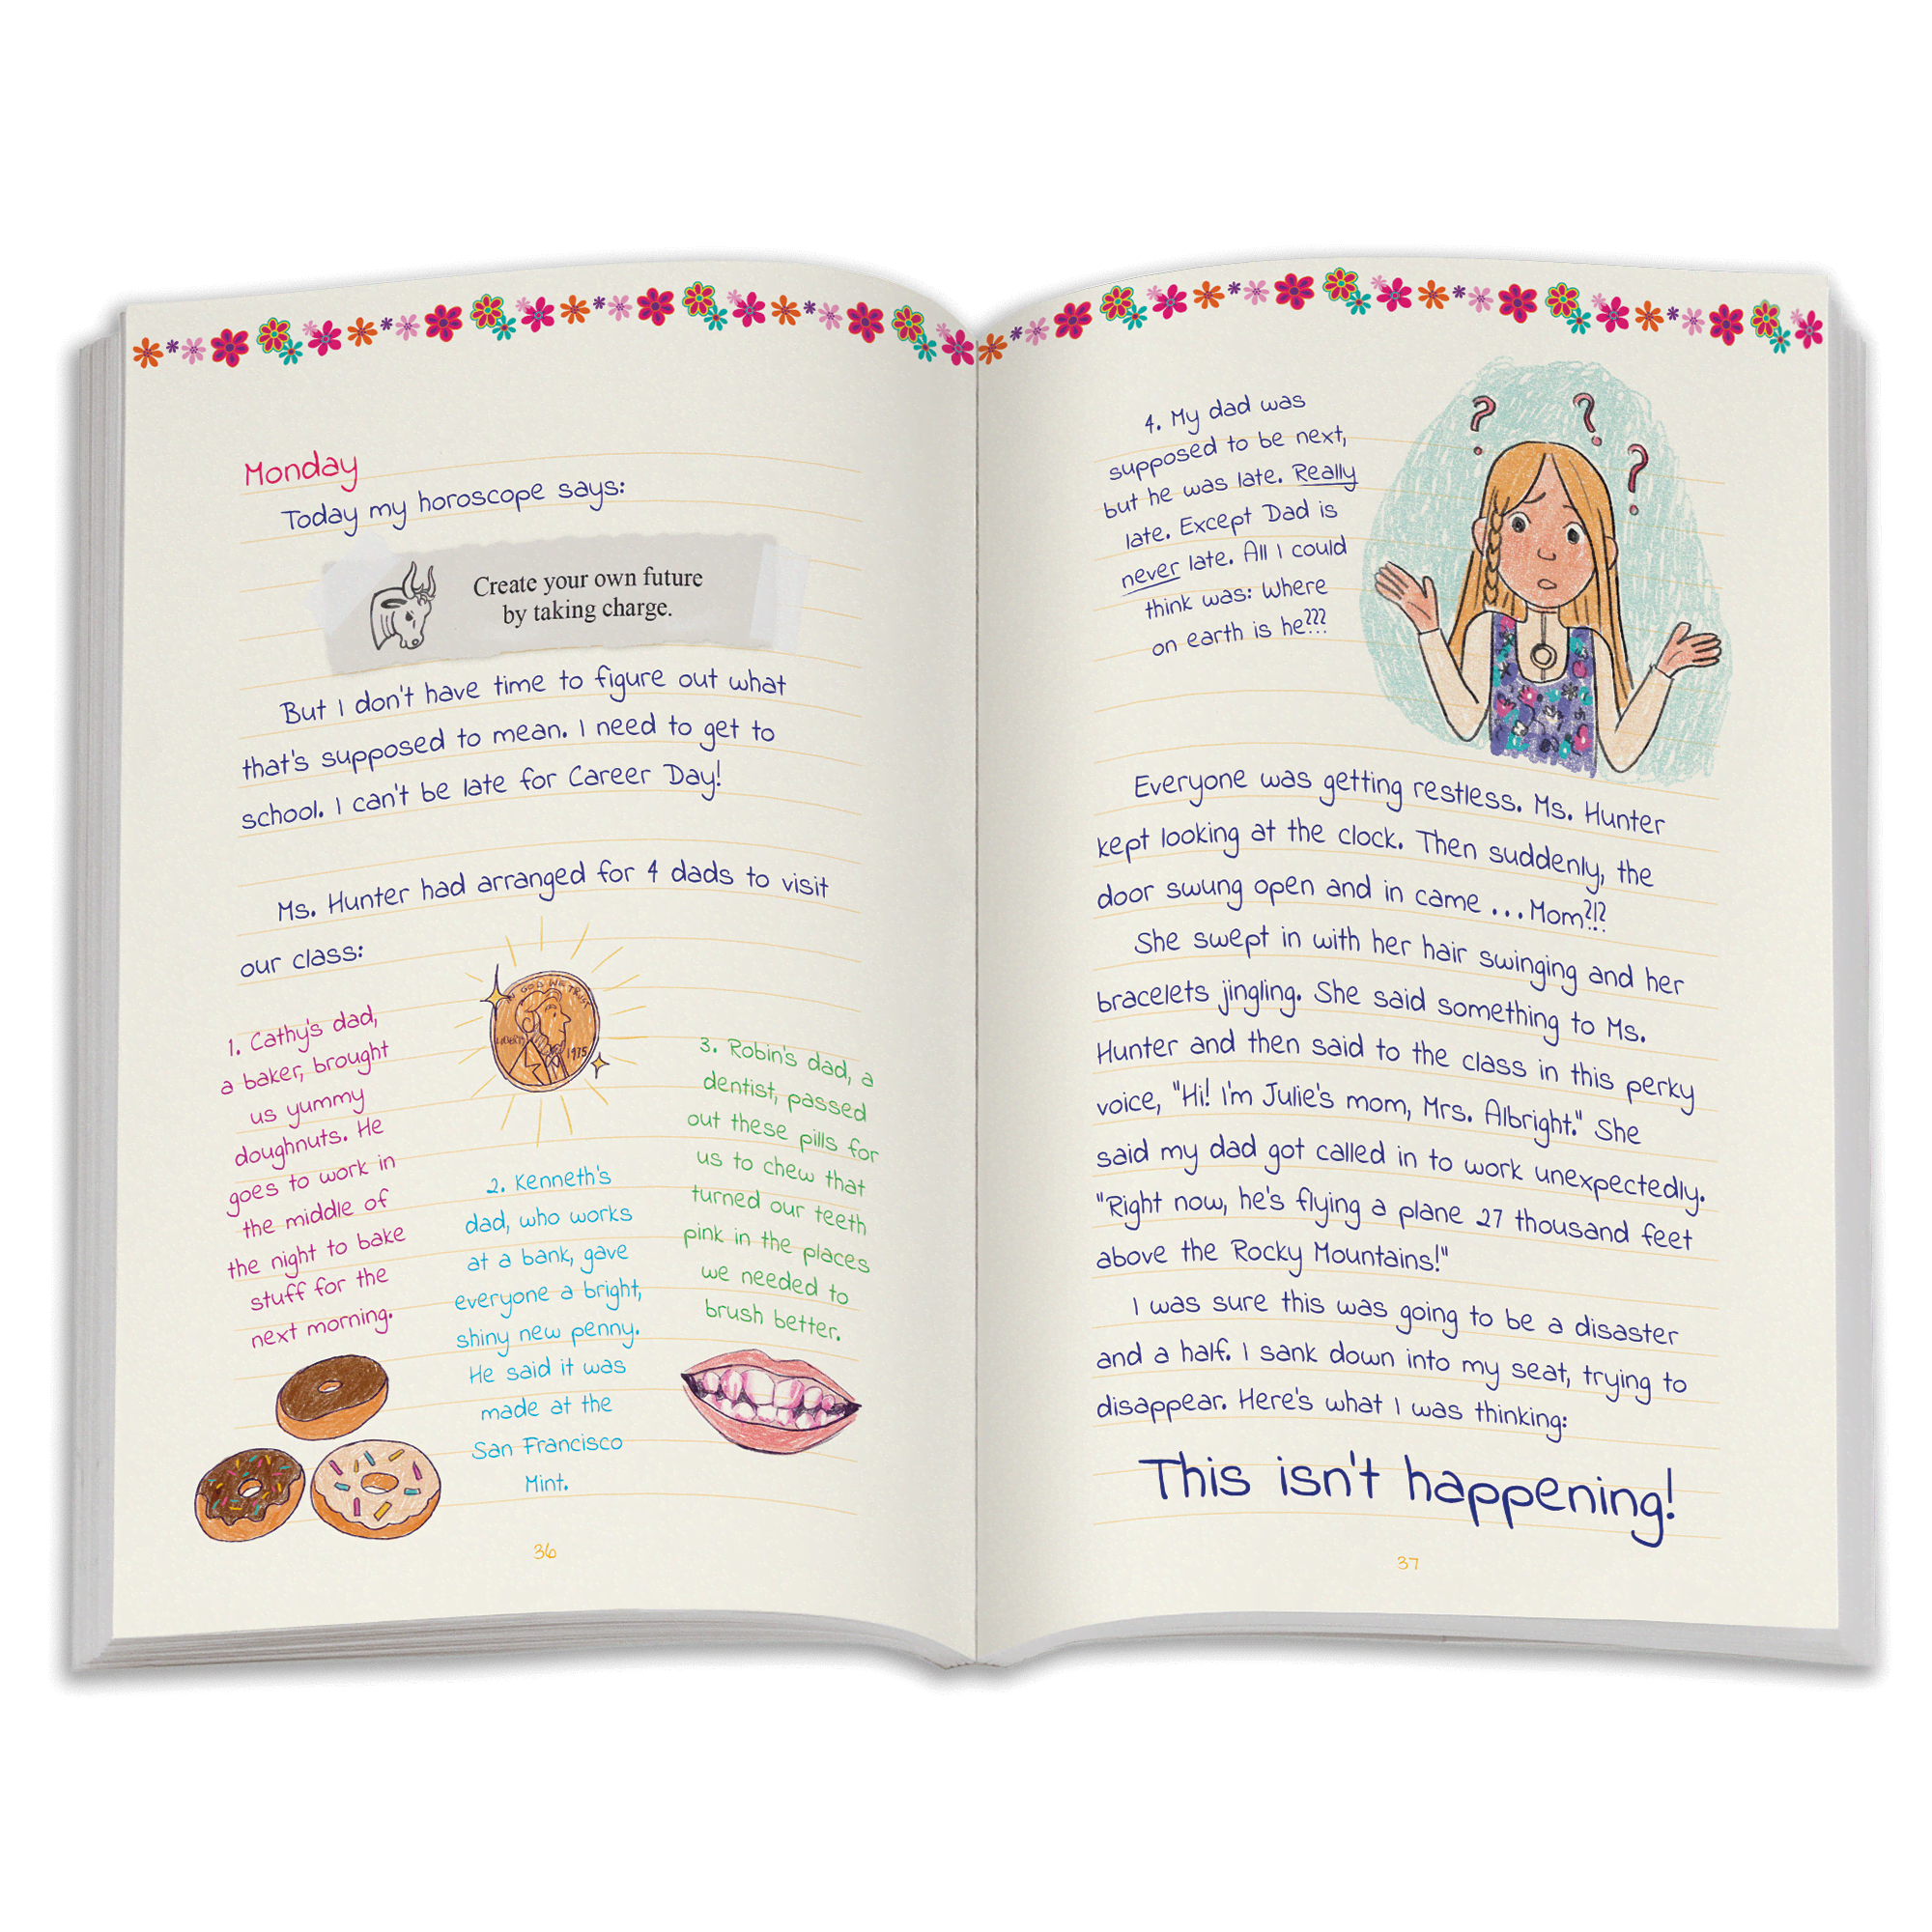 Monday
Today my horoscope says:
Create your own future
by taking charge.
But I don't have time to figure out what
that's supposed to mean. I need to get to
school. I can't be late for Career Day!
Ms. Hunter had arranged for 4 dads to visit
our class:
1. Cathy's dad,
a baker, brought
us yummy
doughnuts. He
goes to work in
the middle of
the night to bake
stuff for the
next morning.
IN GOD WE TRUST
LIBERTY
1975
2. Kenneth's
dad, who works
at a bank, gave
everyone a bright,
shiny new penny.
He said it was
made at the
San Francisco
Mint.
3. Robin's dad, a
dentist, passed
out these pills for
us to chew that
turned our teeth
pink in the places
we needed to
brush better.
36
4. My dad was
supposed to be next,
but he was late. Really
late. Except Dad is
never late. All I could
think was: Where
on earth is he???
? ? ?
Everyone was getting restless. Ms. Hunter
kept looking at the clock. Then suddenly, the
door swung open and in came ...Mom?!?
She swept in with her hair swinging and her
bracelets jingling. She said something to Ms.
Hunter and then said to the class in this perky
voice, "Hi! I'm Julie's mom, Mrs. Albright." She
said my dad got called in to work unexpectedly.
"Right now, he's flying a plane 27 thousand feet
above the Rocky Mountains!"
I was sure this was going to be a disaster
and a half. I sank down into my seat, trying to
disappear. Here's what I was thinking:
This isn't happening!
37